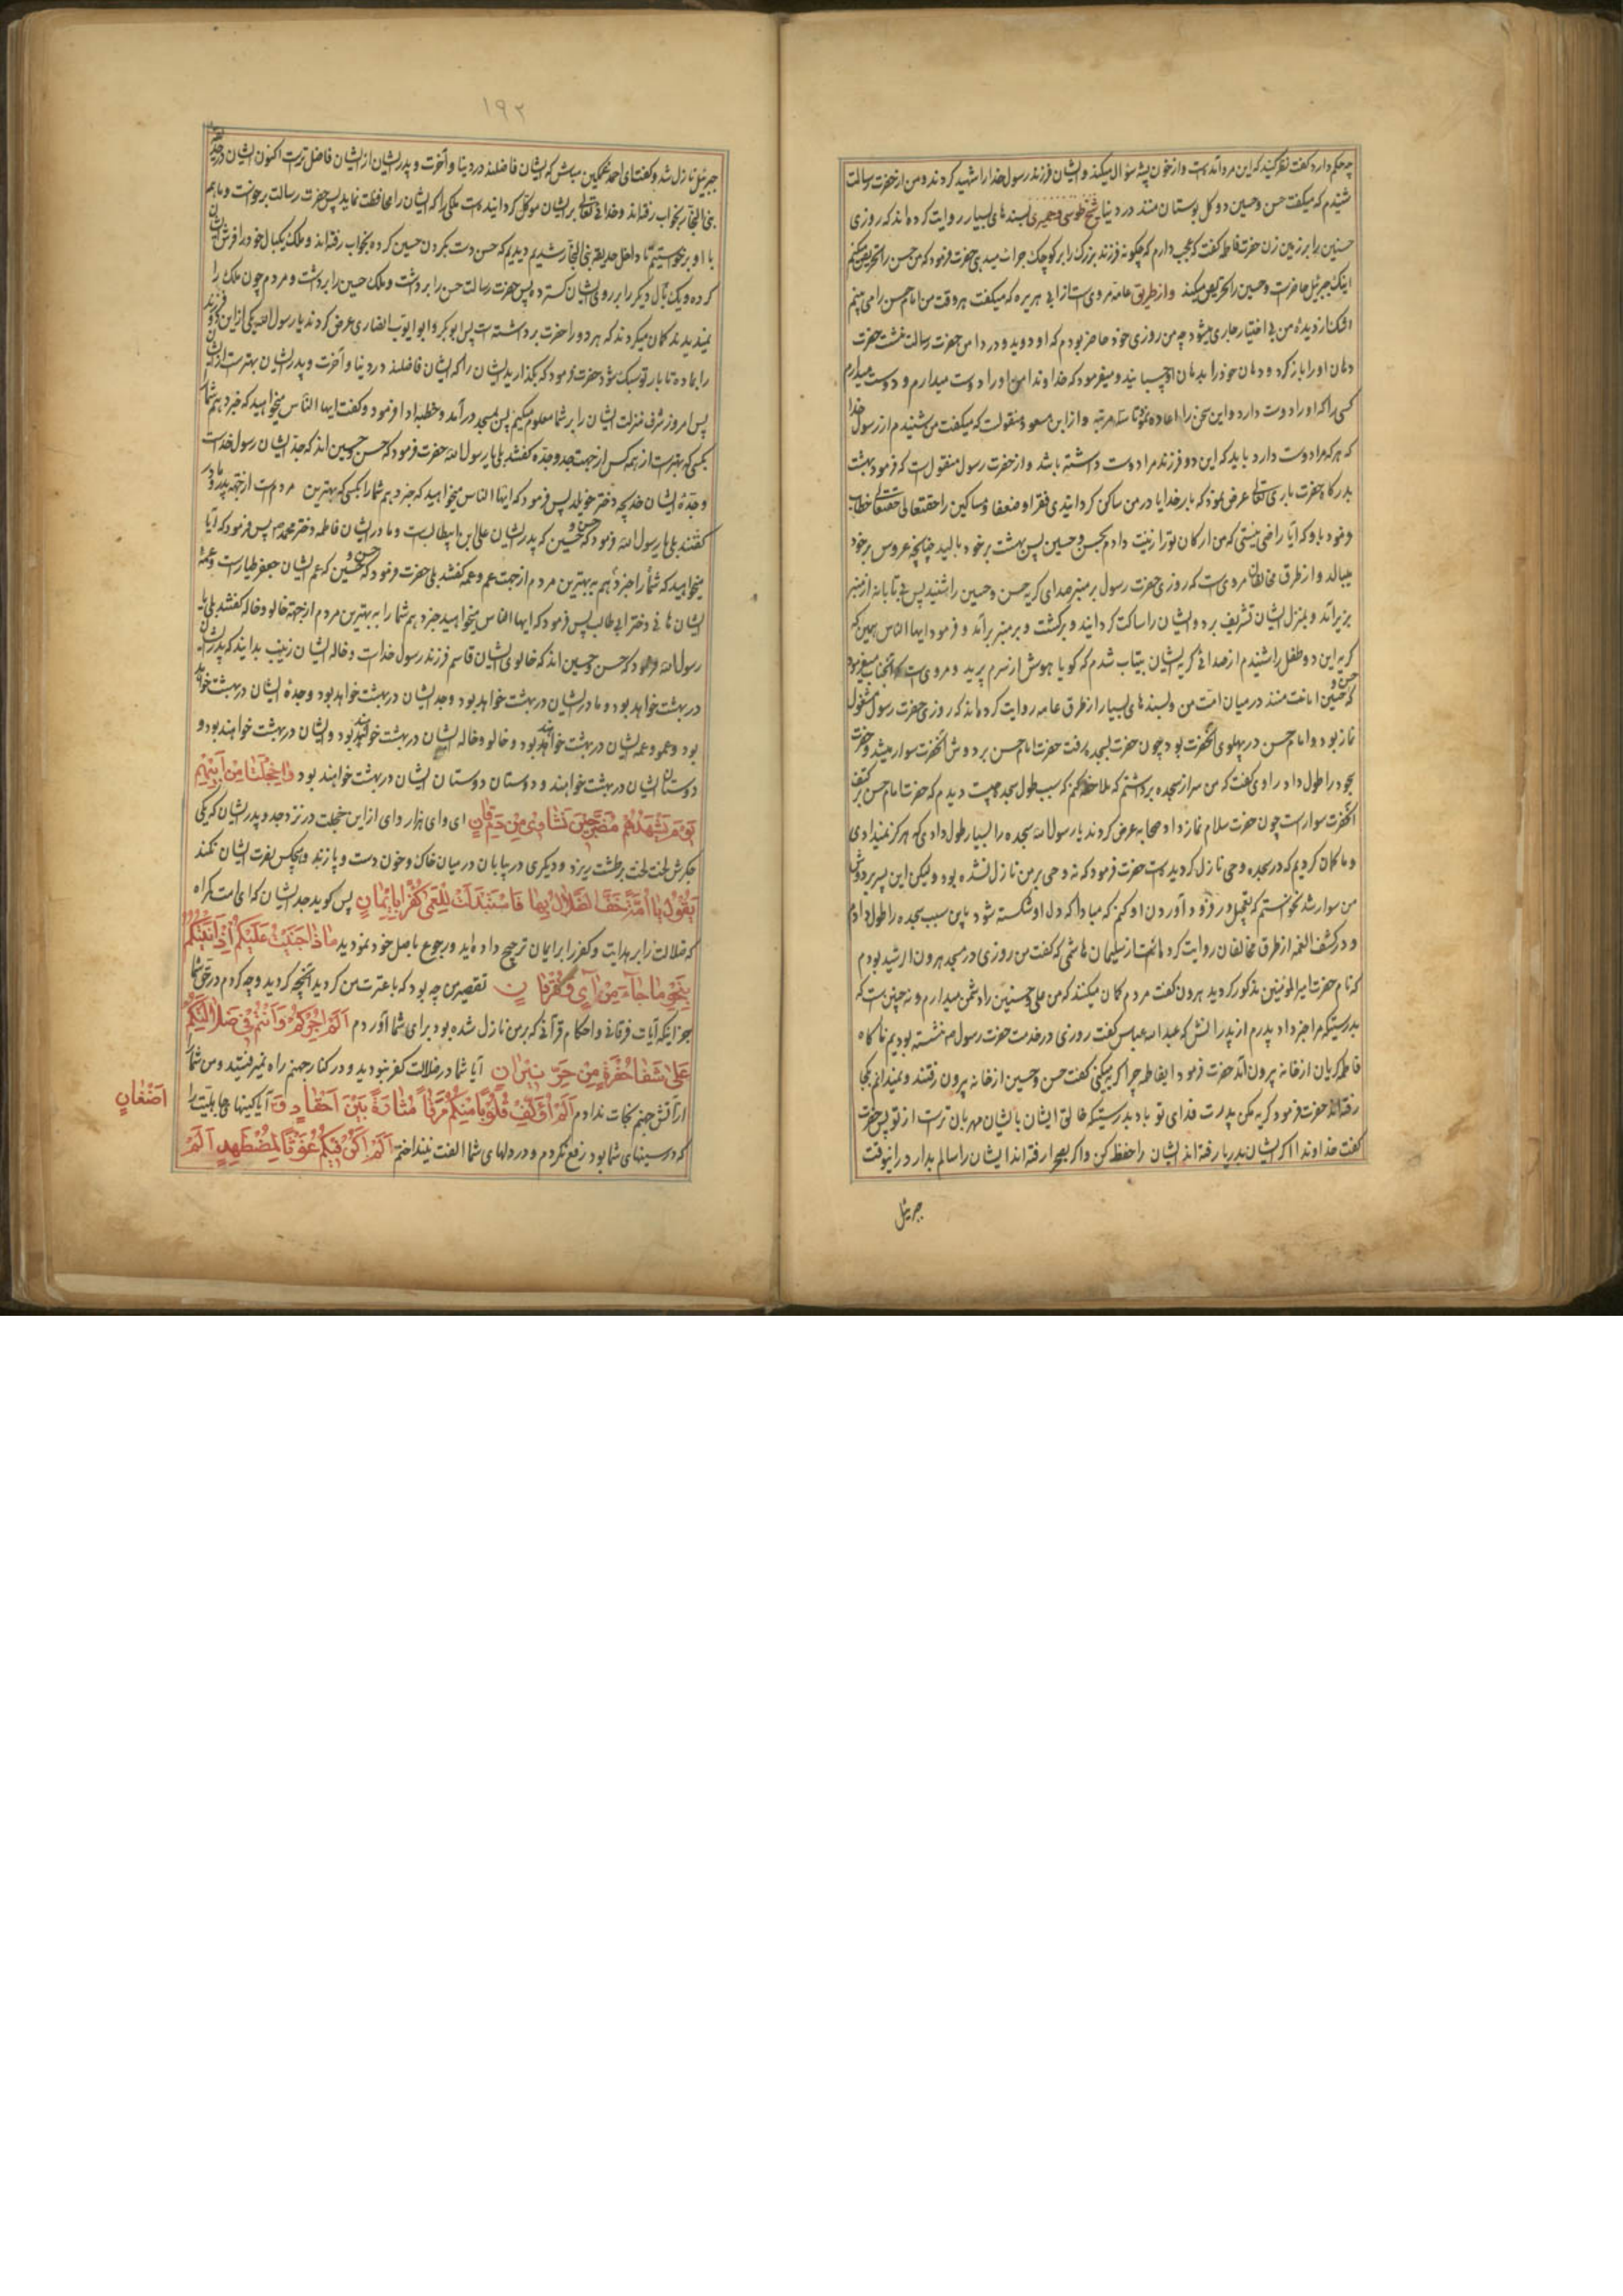 چه حکم دارد گفت نظر کنید که این مرد آمده است و از خون پشه سؤال میکند و ایشان فرزند رسول خدا را شهید کردند و من از حضرت رسالت
شنیدم که میگفت حسن و حسین دو گل بوستان منند در دنیا شیخ طوسی و حمیری بسندهای بسیار روایت کرده‌اند که روزی
حسنین را بر زمین زن حضرت فاطمه گفت که عجب دارم که چگونه فرزند بزرگ را بر کوچک جرأت میدهی حضرت فرمود که من حسن را تحریص میکنم
اینک جبرئیل حاضر است و حسین را تحریص میکند و از طریق عامه مرویست از ابی هریره که میگفت هر وقت من امام حسن را می بینم
اشک از دیدهٔ من بی اختیار جاری میشود چه من روزی خود حاضر بودم که او دوید و در دامن حضرت رسالت نشست حضرت
دهان او را باز کرد و دهان خود را بدهان او چسبانید و میفرمود که خداوندا من او را دوست میدارم و دوست میدارم
کسی را که او را دوست دارد و این سخن را اعاده نمود تا سه مرتبه و از ابن مسعود منقولست که میگفت من شنیدم از رسول خدا
که هر که مرا دوست دارد باید که این دو فرزند مرا دوست داشته باشد و از حضرت رسول منقول است که فرمود بهشت
بدرگاه حضرت باری تعالی عرض نمود که بار خدایا در من ساکن گردانیدی فقرا و ضعفا و مساکین را حقتعالی خطاب
فرمود باو که آیا راضی نیستی که من ارکان تو را زینت دادم بحسن و حسین پس بهشت بر خود بالید چنانچه عروس بر خود
میبالد و از طرق مخالفان مرویست که روزی حضرت رسول بر منبر صدای گریه حسن و حسین را شنید پس بی تابانه از منبر
بزیر آمد و بمنزل ایشان تشریف برد و ایشان را ساکت گردانید و برگشت و بر منبر برآمد و فرمود ایها الناس همین که
گریه این دو طفل را شنیدم از صدای گریه ایشان بیتاب شدم که گویا هوش از سرم پرید و مرویست که آنجناب میفرمود
که حسن و حسین امانت منند در میان امت من و بسندهای بسیار از طرق عامه روایت کرده‌اند که روزی حضرت رسول مشغول
نماز بود و امام حسن در پهلوی آنحضرت بود چون حضرت بسجده رفت حضرت امام حسن بر دوش آنحضرت سوار میشد و حضرت
سجود را طول داد راوی گفت که من سر از سجده برداشتم که ملاحظه کنم که سبب طول سجده چیست دیدم که حضرت امام حسن بر کتف
آنحضرت سوار است چون حضرت سلام نماز داد صحابه عرض کردند یا رسول الله سجده را بسیار طول دادی که هرگز نمیدادی
و ما گمان کردیم که در سجده وحی نازل گردیده است حضرت فرمود که نه وحی بر من نازل نشده بود ولیکن این پسر بر دوش
من سوار شد نخواستم که تعجیل در فرود آوردن او کنم که مبادا که دل او شکسته شود باین سبب سجده را طول دادم
و در کشف الغمه از طرق مخالفان روایت کرده است از سلیمان هاشمی که گفت من روزی در مسجد هرون الرشید بودم
که نام حضرت امیر المؤمنین مذکور گردید هرون گفت مردم گمان میکنند که من علی و حسنین را دشمن میدارم و نه چنین است که
بدرستیکه مرا خبر داد پدرم از پدرانش که عبد الله عباس گفت روزی در خدمت حضرت رسول ص نشسته بودیم ناگاه
فاطمه گریان از خانه بیرون آمد حضرت فرمود ایفاطمه چرا گریه میکنی گفت حسن و حسین از خانه بیرون رفتند و نمیدانم بکجا
رفته‌اند حضرت فرمود گریه مکن پدرت فدای تو باد بدرستیکه خالق ایشان بایشان مهربان تر است از تو پس حضرت
گفت خداوندا اگر ایشان بدریا رفته‌اند ایشان را حفظ کن و اگر بصحرا رفته‌اند ایشان را سالم بدار در اینوقت
جبرئیل
۱۹۲
جبرئیل نازل شد و گفت ای احمد غمگین مباش که ایشان فاضلند در دنیا و آخرت و پدر ایشان از ایشان فاضل تر است اکنون ایشان در حدیقه
بنی النجار بخواب رفته‌اند و خدای تعالی بر ایشان موکل گردانیده است ملکی را که ایشان را محافظت نماید پس حضرت رسالت برخواست و ما هم
با او برخواستیم تا داخل حدیقه بنی النجار شدیم دیدیم که حسن دست بگردن حسین کرده بخواب رفته‌اند و ملک یکبال خود را فرش ایشان
کرده و یک بال دیگر را بر روی ایشان گسترده پس حضرت رسالت حسن را برداشت و ملک حسین را برداشت و مردم چون ملک را
نمیدیدند گمان میکردند که هر دو را حضرت برداشته است پس ابوبکر و ابو ایوب انصاری عرض کردند یا رسول الله یکی از این دو فرزند
را بما ده تا بار تو سبک شود حضرت فرمود که بگذارید ایشان را که ایشان فاضلند در دنیا و آخرت و پدر ایشان بهتر است از ایشان
پس امروز شرف منزلت ایشان را بر شما معلوم میکنم پس بمسجد درآمد و خطبه ادا فرمود و گفت ایها الناس میخواهید که خبر دهم شما را
بکسی که بهتر است از همه کس از جهت جد و جده گفتند بلی یا رسول الله حضرت فرمود که حسن و حسین اند که جد ایشان رسول خداست
و جدهٔ ایشان خدیجه دختر خویلد پس فرمود که ایها الناس میخواهید که خبر دهم شما را بکسی که بهترین مردم است از جهة پدر و مادر
گفتند بلی یا رسول الله فرمود که حسن و حسین که پدر ایشان علی بن ابیطالب است و مادر ایشان فاطمه دختر محمد ص پس فرمود که آیا
میخواهید که شما را خبر دهم به بهترین مردم از جهت عم و عمه گفتند بلی حضرت فرمود که حسن و حسین که عم ایشان جعفر طیار است و عمهٔ
ایشان هانی دختر ابی طالب پس فرمود که ایها الناس میخواهید خبر دهم شما را به بهترین مردم از جهة خالو و خاله گفتند بلی یا
رسول الله فرمود که حسن و حسین اند که خالوی ایشان قاسم فرزند رسول خداست و خاله ایشان زینب بدانید که پدر ایشان
در بهشت خواهد بود و مادر ایشان در بهشت خواهد بود و جد ایشان در بهشت خواهد بود و جدهٔ ایشان در بهشت خواهد
بود و عم و عمه ایشان در بهشت خواهند بود و خالو و خاله ایشان در بهشت خواهند بود و ایشان در بهشت خواهند بود و
دوستان ایشان در بهشت خواهند و دوستان دوستان ایشان در بهشت خواهند بود وا خجلتا من ابیهم
یوم یشهدهم مضرجین نشاوی من دم قان ای وای هزار وای از این خجلت در نزد جد و پدر ایشان که یکی
جگرش لخت لخت بر طشت ریزد و دیگری در بیابان در میان خاک و خون دست و پا زند و هیچکس نصرت ایشان نکند
یقول یا امة حف الضلال بها فاستبدلت للعمی کفرا بایمان پس گوید جد ایشان که ای امت گمراه
که ضلالت را بر هدایت و کفر را بر ایمان ترجیح داده‌اید و رجوع باصل خود نمودید ماذا جنیت علیکم اذ اتیتکم
بخیر ما جاء من آی و فرقان تقصیر من چه بود که با عترت من کردید آنچه کردید و چه کردم در حق شما
جز اینکه آیات فرقانی و احکام قرآنی که بر من نازل شده بود برای شما آوردم الم اجرکم و انتم فی ضلالتکم
علی شفا حفرة من حر نیران آیا شما در ضلالت کفر نبودید و در کنار جهنم راه نمیرفتید و من شما را
از آتش جهنم نجات ندادم الم اؤلف قلوبا منکم مزقا مثارة بین احقاد و آیا کینهای جاهلیت را
اضغان
که در سینهای شما بود رفع نکردم و در دلهای شما الفت نینداختم الم اکن فیکم غوثا لمضطهد الم